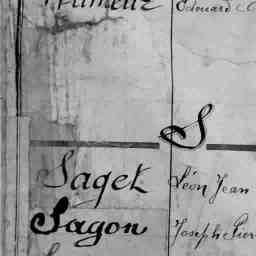 Edouard
S
Saget Léon Jean
Sagon Joseph